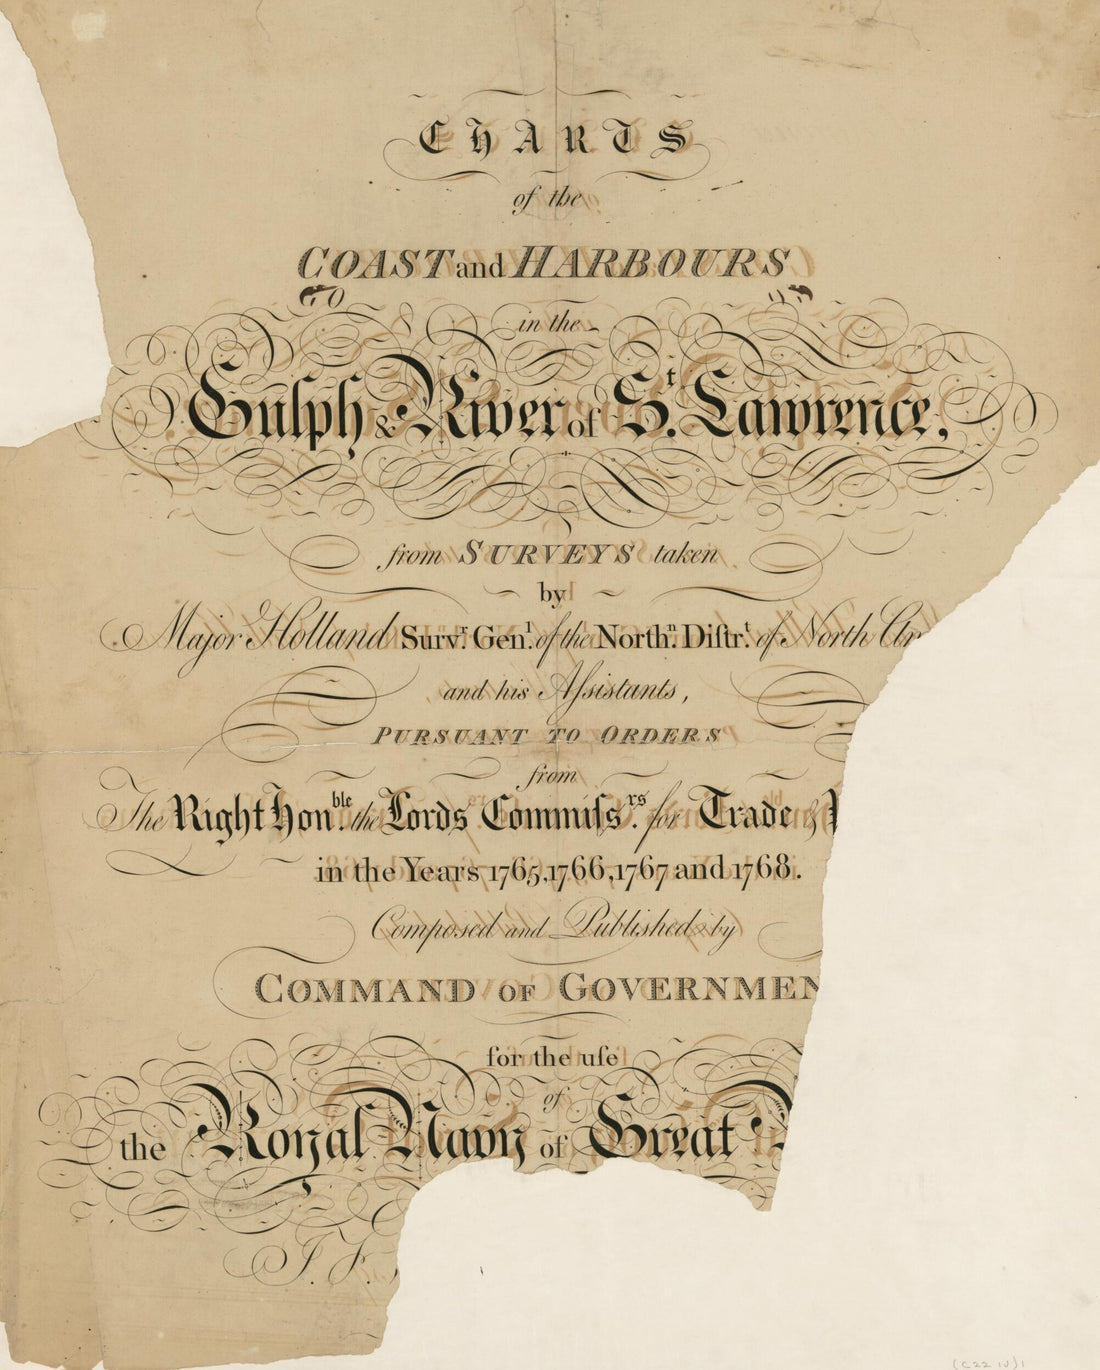 CHARTS
of the
COAST and HARBOURS
in the
Gulph & River of St. Lawrence,
from SURVEYS taken
by
Major Holland Survr. Genl. of the Northn. Diſtrt. of North Am
and his Aſsistants,
PURSUANT TO ORDERS
from
The Right Honble. the Lords Commiſsrs. for Trade &
in the Years 1765, 1766, 1767 and 1768.
Composed and Published by
COMMAND OF GOVERNMEN
for the uſe
of
the Royal Navy of Great
J. F.
(C22 10)1